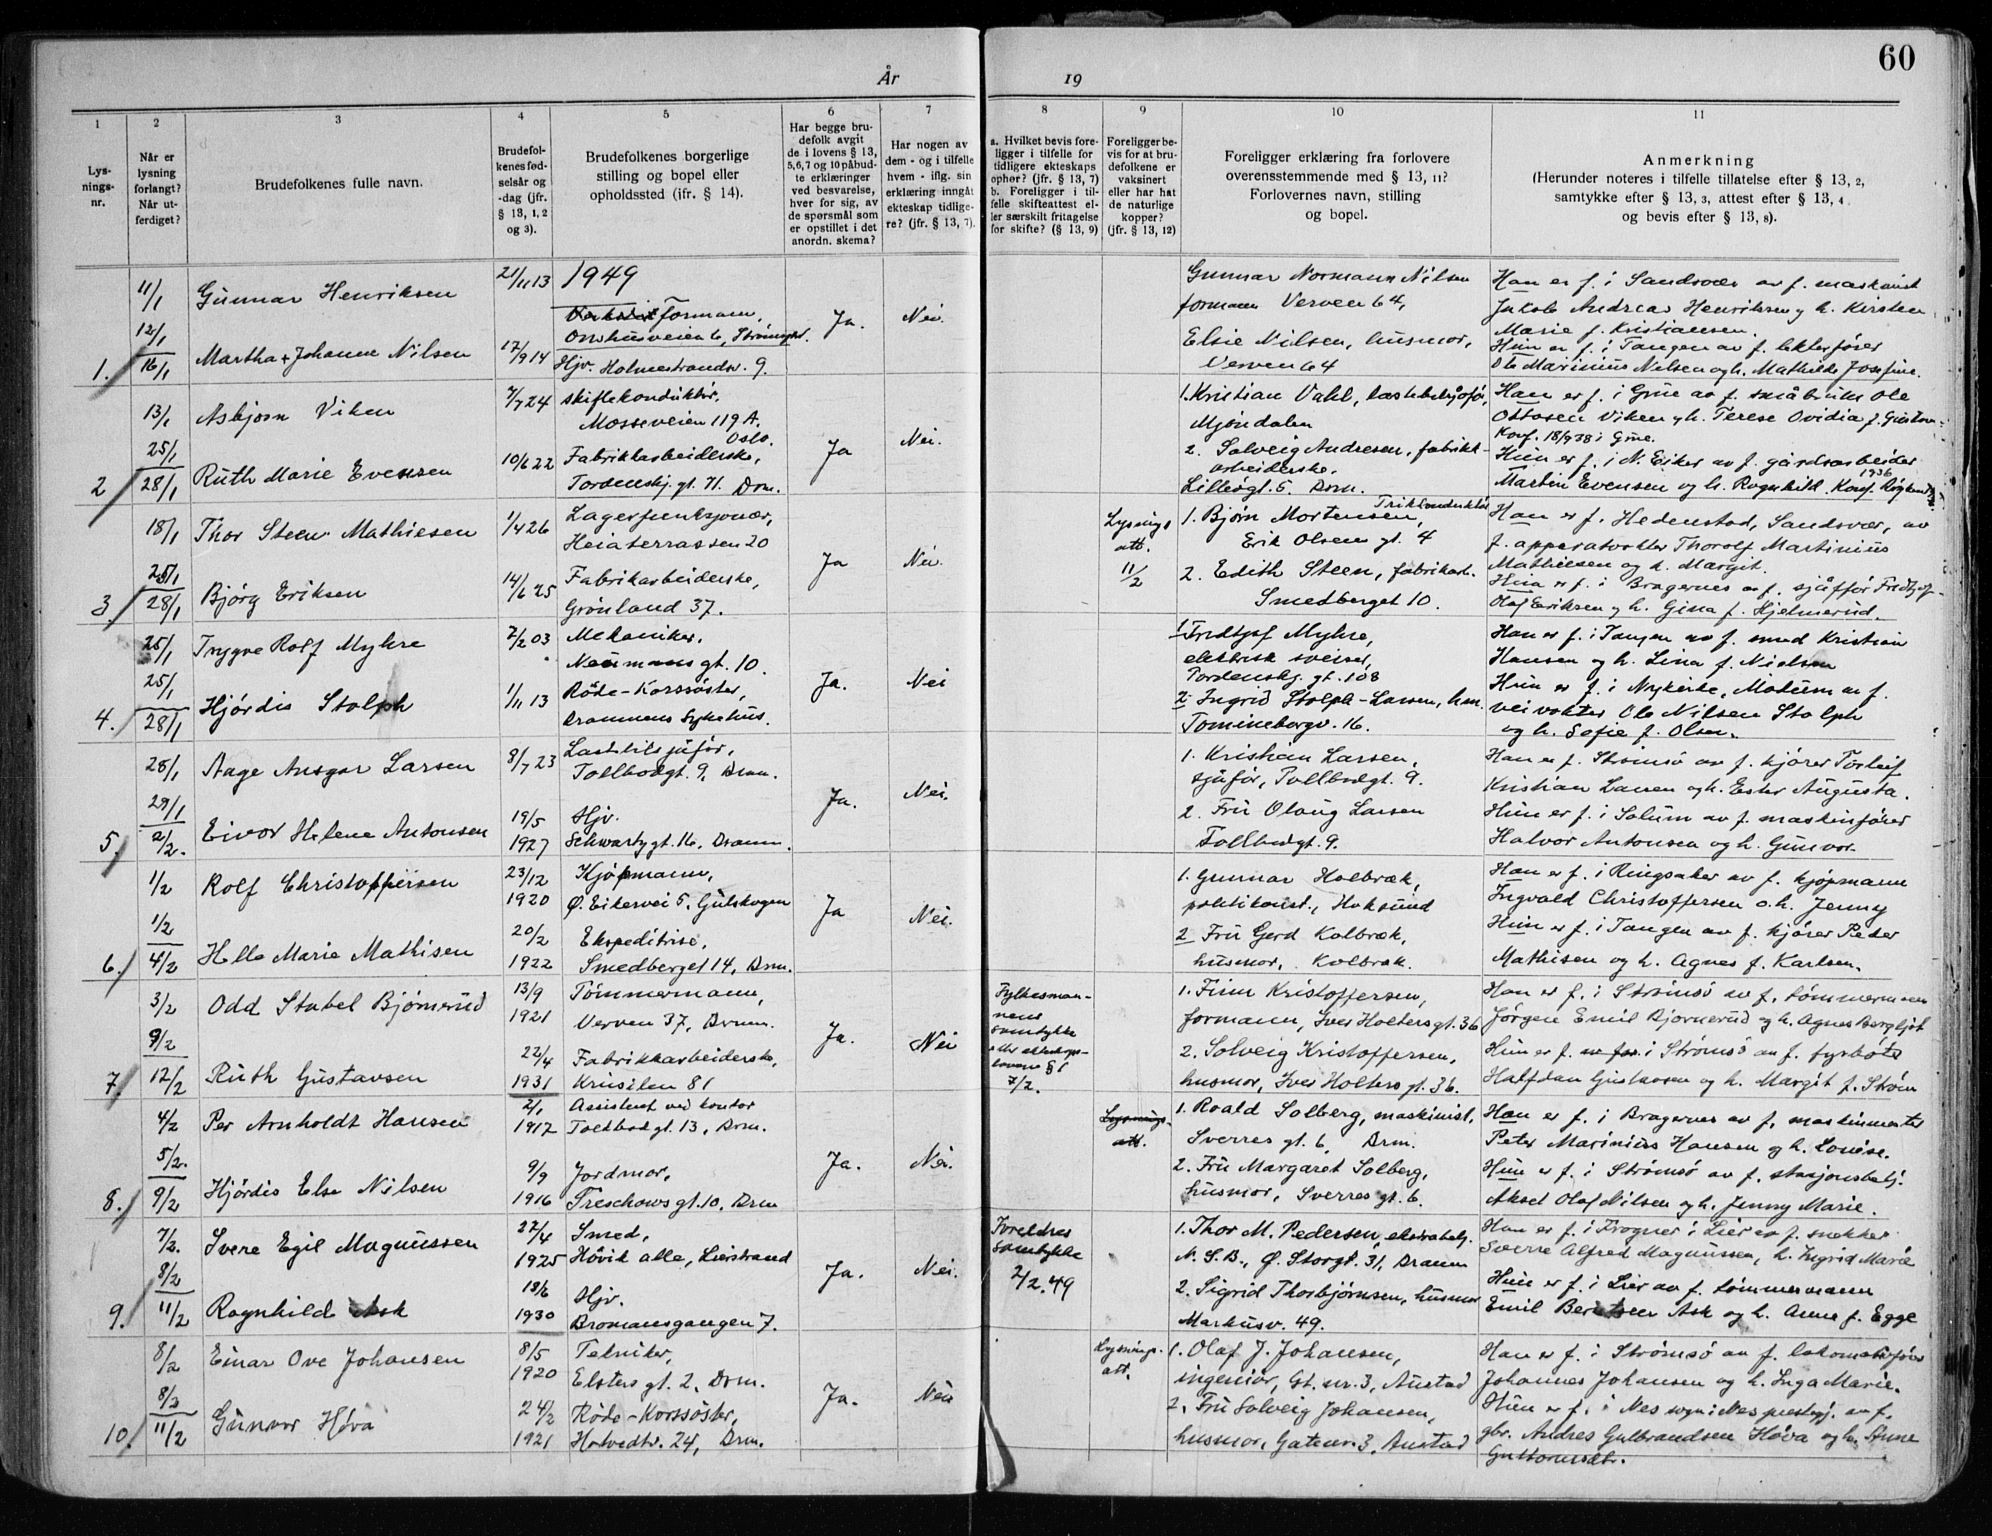 60
År 19
1 2 3 4 5 6 7 8 9 10 11
Lys-
nings-
nr.
Når er
lysning
forlangt?
Når ut-
ferdiget?
Brudefolkenes fulle navn.
Brudefol-
kenes fød-
selsår og
-dag (jfr.
§ 13, 1, 2
og 3).
Brudefolkenes borgerlige
stilling og bopel eller
opholdssted (jfr. § 14).
Har begge bru-
defolk avgit
de i lovens § 13,
5, 6, 7 og 10 påbud-
te erklæringer
ved besvarelse,
hver for sig, av
de spørsmål som
er opstillet i det
anordn. skema?
Har nogen av
dem - og i tilfelle
hvem - iflg. sin
erklæring inngått
ekteskap tidlige-
re? (jfr. § 13, 7).
a. Hvilket bevis fore-
ligger i tilfelle for
tidligere ekteskaps
ophør? (jfr. § 13, 7)
b. Foreligger i til-
felle skifteattest el-
ler særskilt fritagelse
for skifte? (§ 13, 9)
Foreligger be-
vis for at bru-
defolkene er
vaksinert
eller har hat
de naturlige
kopper?
(jfr. § 13, 12)
Foreligger erklæring fra forlovere
overensstemmende med § 13, 11?
Forlovernes navn, stilling
og bopel.
Anmerkning
(Herunder noteres i tilfelle tillatelse efter § 13, 2,
samtykke efter § 13, 3, attest efter § 13, 4
og bevis efter § 13, 8).
1949
1. 11/1 12/1 16/1
Gunnar Henriksen
21/11 13
formann,
Ja. Nei.
Martha + Johanne Nilsen
17/9 14
Hjv. Holmestrandsv. 9.
Gunnar Normann Nilsen
formann Verven 64,
Elsie Nilsen, husmor,
Verven 64
Han er f. i Sandsvær av f. maskinist
Jakob Andreas Henriksen og h. Kirsten
Marie f. Kristiansen.
Hun er f. i Tangen av f. lekterfører
Ole Marinius Nilsen og h. Mathilde Josefine.
2 13/1 25/1 28/1
Asbjørn Viken
7/7 24
skiftekonduktør,
Mosseveien 119 A.
Oslo.
Ja Nei.
Ruth Marie Evensen
10/6 22
Fabrikkarbeiderske,
Tordenskj. gt. 71. Drm.
1. Kristian Vahl, lastebilsjåfør,
Mjøndalen
2. Solveig Andresen, fabrikk-
arbeiderske.
Lilleøgt. 5. Drm.
Han er f. i Grue av f. småbruker Ole
Ottosen Viken og h. Terese Ovidia f.
Konf. 18/9 38 i Grue.
Hun er f. i N. Eiker av f. gårdsarbeider
1936
Martin Evensen og h. Ragnhild. Konf.
3. 18/1 25/1 28/1
Thor Steen Mathiesen
1/4 26
Lagerfunksjonær,
Heiaterrassen 20
Ja Nei.
Bjørg Eriksen
14/6 25
Fabrikarbeiderske,
Grønland 37.
Lysnings
att.
11/2
1. Bjørn Mortensen, Trikkonduktør
Erik Olsens gt. 4
2. Edith Steen, fabrikarb.
Smedberget 10.
Han er f. Hedenstad, Sandsvær, av
f. apparatvokter Thorolf Martinius
Mathiesen og h. Margit.
Hun er f. i Bragernes av f. sjåfør Fredtjof
Olaf Eriksen og h. Gina f. Hjelmerud.
4. 25/1 25/1 28/1
Tryggve Rolf Myhre
7/2 03
Mekaniker.
Neumans gt. 10.
Ja. Nei
Hjørdis Stolph
1/11 13
Røde-Korssøster,
Drammens Sykehus.
1. Fredtjof Myhre,
elektrisk sveiser,
Tordenskj. gt. 108
2. Ingrid Stolph-Larsen, hm.
Tomineborgv. 16.
Han er f. i Tangen av f. smed Kristian
Hansen og h. Lina f. Nielsen
Hun er f. i Nykirke, Modum av f.
veivokter Ole Nilsen Stolph
og h. Sofie f. Olsen.
5. 28/1 29/1 2/2.
Aage Ansgar Larsen
8/7 23
Lastebilsjåfør,
Tollbodgt. 9. Drm.
Ja. Nei.
Eivor Helene Antonsen
19/5
1927
Hjv.
Schwartzgt. 16, Dramm.
1. Kristian Larsen,
sjåfør, Tollbodgt. 9.
2. Fru Olaug Larsen
Tollbodgt. 9.
Han er f. Strømsø av f. kjører Torleif
Kristian Larsen og h. Ester Augusta.
Hun er f. i Solum av f. maskinfører
Halvor Antonsen og h. Gunvor.
6. 1/2 1/2 4/2
Rolf Christoffersen
23/12
1920
Kjøpmann,
Ø. Eikervei 5. Gulskogen
Ja Nei.
Helle Marie Mathisen
20/2
1922
Ekspeditrise,
Smedberget 14, Drm.
1. Gunnar Holbræk,
politikonst., Hoksund
2 Fru Gerd Kolbræk,
husmor, Kolbræk.
Han er f. i Ringsaker av f. kjøpmann
Ingvald Christoffersen o. h. Jenny
Hun er f. i Tangen av f. kjører Peder
Mathisen og h. Agnes f. Karlsen.
7. 3/2 9/2 12/2
Odd Stabel Bjørnerud
13/9
1921
Tømmermann,
Verven 37, Dramm.
Ja. Nei
Ruth Gustavsen
22/4
1931
Fabrikkarbeiderske,
Kruselen 81
Fylkesman-
nens
samtykke
etter ekteskaps-
lovens § 1
7/2.
1. Finn Kristoffersen,
formann, Iver Holters gt. 36
2. Solveig Kristoffersen,
husmor, Iver Holters gt. 36.
Han er f. i Strømsø av f. tømmermann
Jørgen Emil Bjørnerud og h. Agnes Bergljot
Hun er f. i Strømsø av f. fyrbøter
Halfdan Gustavsen og h. Margit f. Strøm
8. 4/2 5/2. 9/2
Per Arnholdt Hansen
2/1
1917
Assistent ved kontor
Tollbodgt. 13, Drm.
Ja. Nei.
Hjørdis Else Nilsen
9/9
1916
Jordmor,
Treschows gt. 10, Drm
Lysnings-
att.
1. Roald Solberg, maskinist,
Sverres gt. 6, Drm.
2. Fru Margaret Solberg,
husmor, Sverres gt. 6.
Han er f. i Bragernes av f. maskinmester
Peter Marinius Hansen og h. Louise.
Hun er f. i Strømsø av f. stasjonsbetj.
Aksel Olaf Nilsen og h. Jenny Marie.
9. 7/2. 8/2 11/2
Svere Egil Magnussen
22/4
1925
Smed,
Høvik alle, Lierstrand
Ja. Nei.
Ragnhild Ask
18/6
1930
Hjv.
Bromansgangen 7.
Foreldres
samtykke
2/2.49
1. Thor M. Pedersen, ekstrabetj.
N.S.B., Ø. Storgt. 31, Dramm
2. Sigrid Thorbjørnsen, husmor
Markusv. 49.
Han er f. i Frogner i Lier av f. snekker
Sverre Alfred Magnussen, h. Ingrid Marie
Hun er f. i Lier av f. tømmermann
Emil Berntsen Ask og h. Anna f. Egge
10. 8/2 8/2 11/2
Einar Ove Johansen
8/5
1920
Tekniker,
Elsters gt. 2, Drm.
Ja. Nei
Gunvor Høva
24/2
1921
Røde-Korssøster,
Hotvedtv. 24, Drm.
Lysnings-
att.
1. Olaf J. Johansen,
ingeniør, Gt. nr. 3, Austad
2. Fru Solveig Johansen,
husmor, Gatenr. 3, Austad
Han er f. i Strømsø av f. lokomotivfører
Johannes Johansen og h. Inga Marie.
Hun er f. i Nes sogn i Nes prestegj. av f.
gbr. Andres Gulbrandsen Høva og h. Anne
Guttormsdtr.